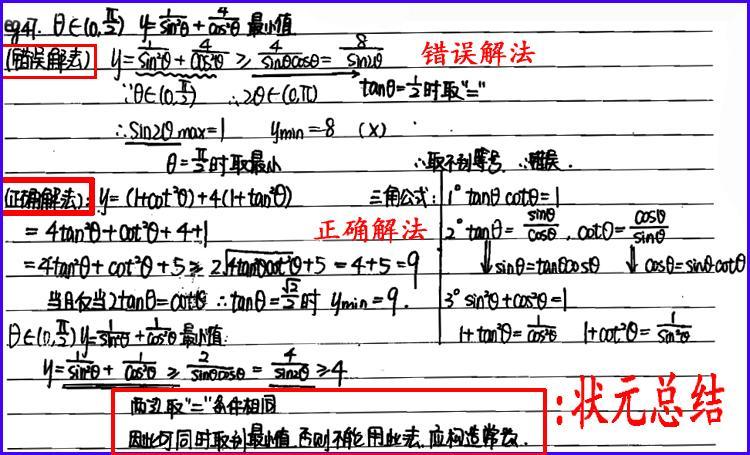 eg47. θ∈(0,π/2) y=1/sin²θ+4/cos²θ 最小值
(错误解法) y=1/sin²θ+4/cos²θ≥4/sinθcosθ=8/sin2θ 错误解法
∵θ∈(0,π/2) ∴2θ∈(0,π) tanθ=1/2时取"="
∴sin2θmax=1 ymin=8 (×)
θ=π/2时取最小 ∴取不到等号 ∴错误.
(正确解法): y=(1+cot²θ)+4(1+tan²θ) 三角公式: 1° tanθcotθ=1
=4tan²θ+cot²θ+4+1 正确解法 2° tanθ=sinθ/cosθ, cotθ=cosθ/sinθ
=4tan²θ+cot²θ+5≥2√4tan²θcot²θ+5=4+5=9 ⇓sinθ=tanθcosθ ⇓cosθ=sinθ·cotθ
当且仅当2tanθ=cotθ ∴tanθ=√2/2时 ymin=9. 3° sin²θ+cos²θ=1
θ∈(0,π/2) y=1/sin²θ+1/cos²θ 最小值: 1+tan²θ=1/cos²θ 1+cot²θ=1/sin²θ
y=1/sin²θ+1/cos²θ≥2/sinθcosθ=4/sin2θ≥4
两边取"="条件相同 :状元总结
因此可同时取到最小值.否则不能用此法.应构造常数.